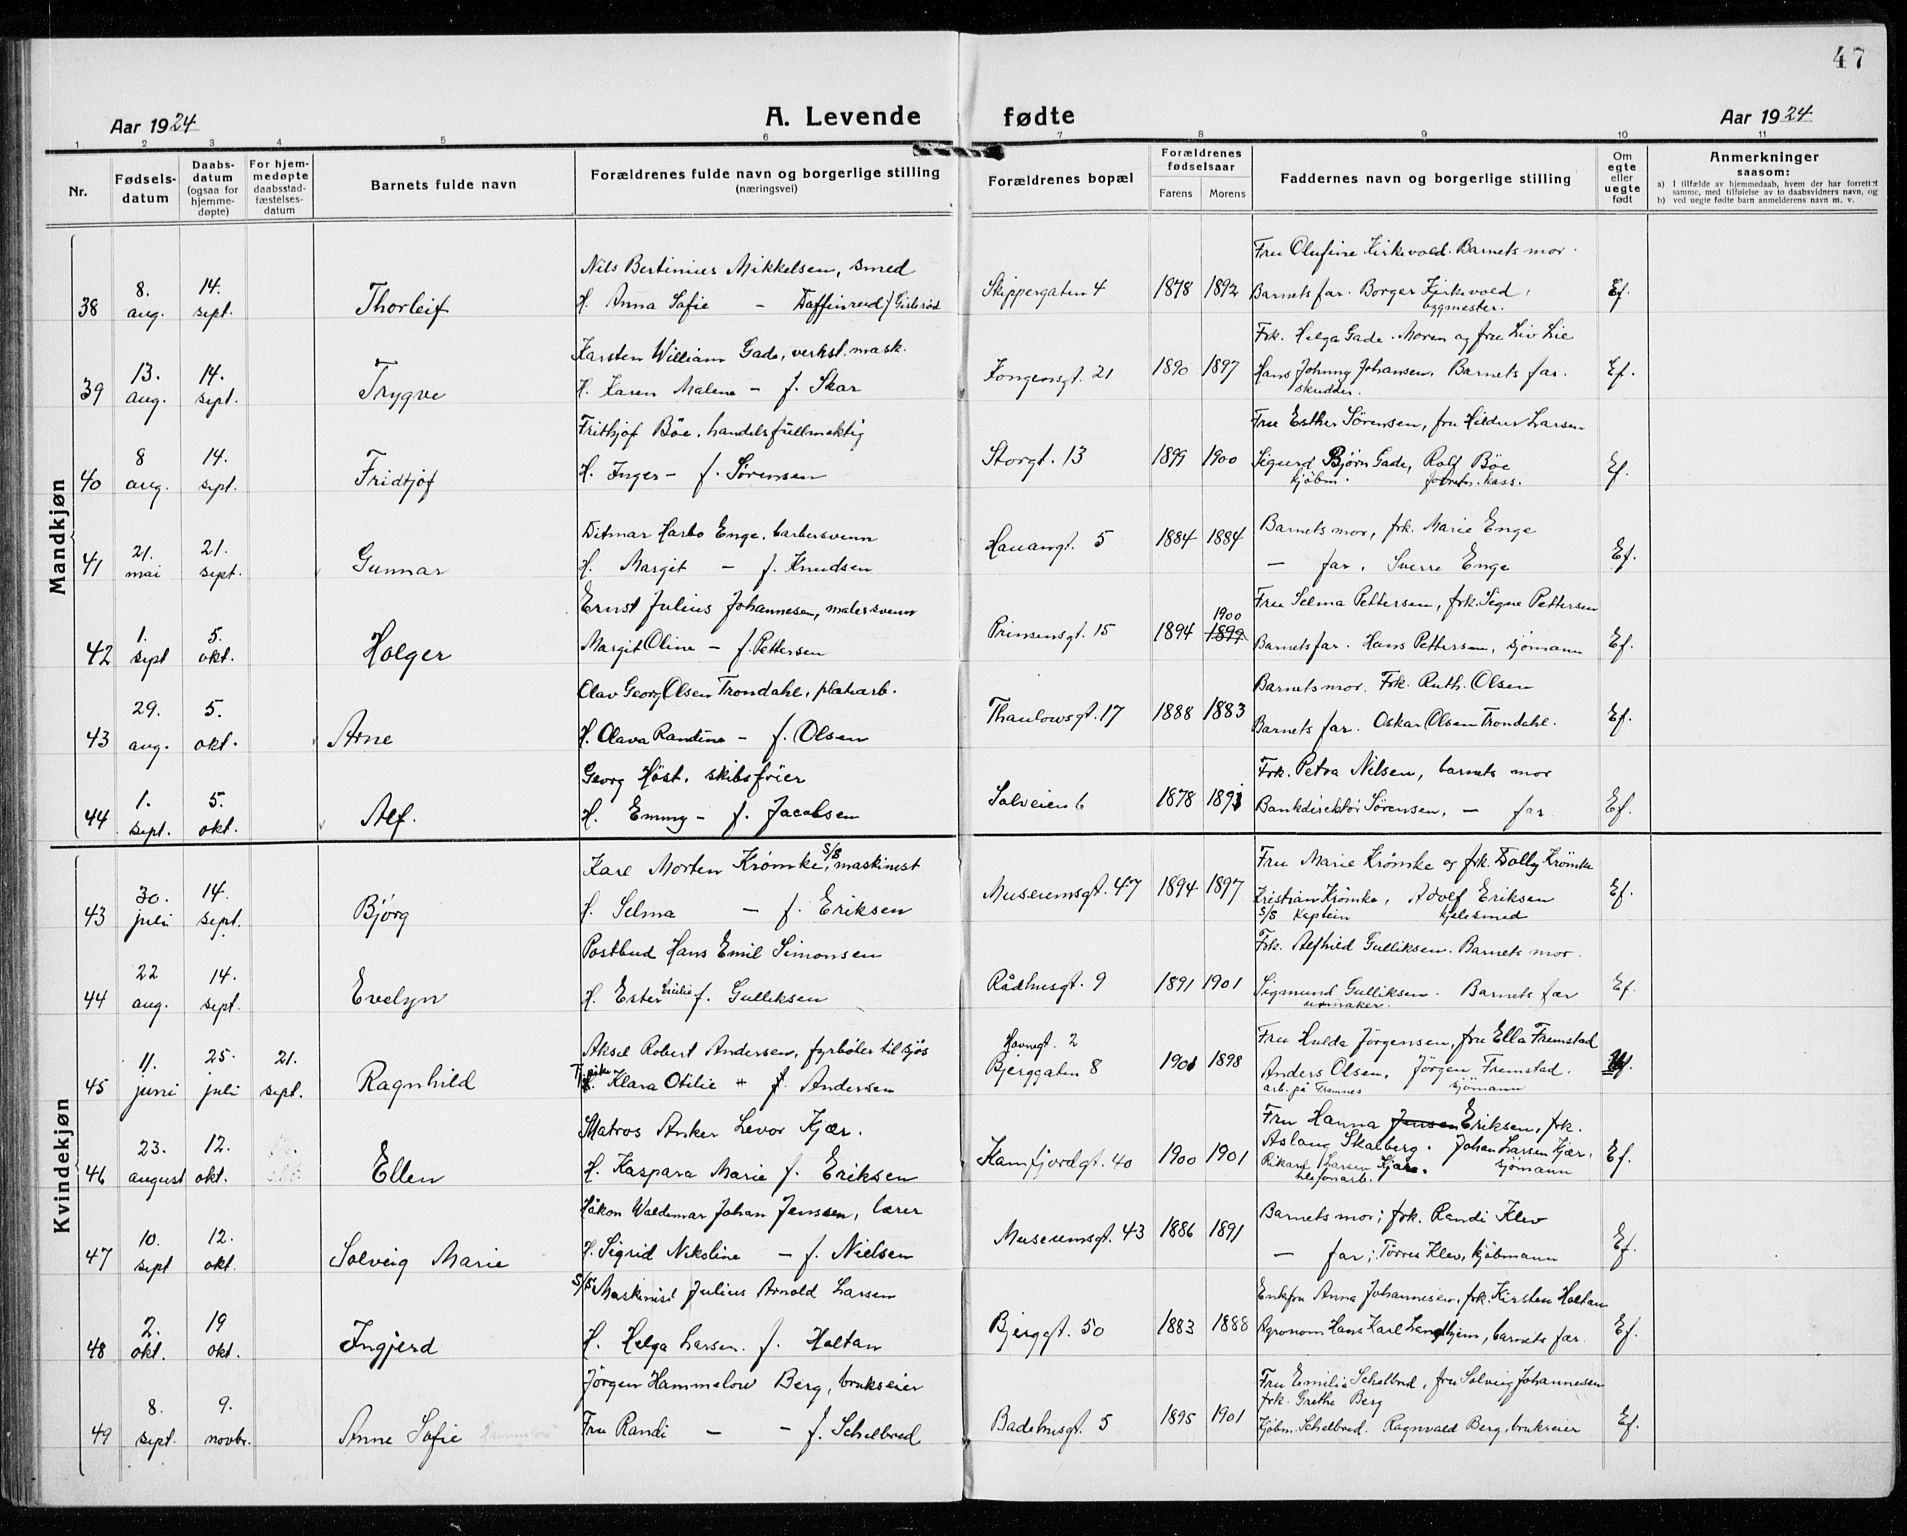 47
Aar 1924
A. Levende fødte
Aar 1924
1 2 3 4 5 6 7 8 9 10 11
Nr.
Fødsels-
datum
Daabs-
datum
(ogsaa for
hjemme-
døpte)
For hjem-
medøpte
daabsstad-
fæstelses-
datum
Barnets fulde navn
Forældrenes fulde navn og borgerlige stilling
(næringsvei)
Forældrenes bopæl
Forældrenes
fødselsaar
Farens Morens
Faddernes navn og borgerlige stilling
Om
egte
eller
uegte
født
Anmerkninger
saasom:
a) I tilfælde av hjemmedaab, hvem der har forrettet
samme, med tilføielse av to daabsvidners navn, og
b) ved uegte fødte barn anmelderens navn m. v.
Mandkjøn
Nils Bertinius Mikkelsen, smed
Fru Olufine Kirkevold. Barnets mor.
38 8. aug. 14. sept. Thorleif H. Anna Sofie — Skippergaten 4 1878 1892 Barnets far. Borger Kirkevold,
byggmester.
Ef.
Karsten William Gade, verkst. mask.
Frk. Helga Gade. Moren og fru Liv Lie
39 13. aug. 14. sept. Trygve H. Karen Malene — f. Skar Kongensgt. 21 1890 1897 Hans Johnny Johansen. Barnets far. Ef.
Frithjof Bøe, handelsfullmektig
Fru Esther Sørensen, fru Hildur Larsen
40 8 aug. 14. sept. Fridtjof H. Inger — f. Sørensen Storgt. 13 1899 1900 Sigurd Bjørn Gade, Rolf Bøe Ef.
kjøbm. kass.
Ditmar Harbo Enge, barbersvenn
Barnets mor, frk. Marie Enge
41 21. mai 21. sept. Gunnar H. Margit — f. Knudsen Hauangt. 5 1884 1884 — far, Sverre Enge Ef.
Ernst Julius Johannesen, malersvenn
1900
Fru Selma Pettersen, frk. Signe Pettersen
42 1. sept 5. okt. Holger Margit Oline — f. Pettersen Prinsensgt. 15 1894 1899 Barnets far. Hans Pettersen, sjømann Ef.
Olav Georg Olsen Trondahl, platearb.
Barnets mor. Frk. Ruth Olsen
43 29. aug. 5. okt. Arne H. Olava Randine — f. Olsen Thaulowsgt. 17 1888 1883 Barnets far. Oskar Olsen Trondahl. Ef.
Georg Høst, skibsfører
Frk. Petra Nilsen, barnets mor
44 1. sept. 5. okt. Alf. H. Emmy — f. Jacobsen Solveien 6 1878 1891 Bankdirektør Sørensen, — far Ef.
Kvindekjøn
Karl Morten Krömke, S/S maskinist
Fru Marie Krömke og frk. Dolly Krömke
43 30. juli 14. sept. Bjørg H. Selma — f. Eriksen Museumsgt. 47 1894 1897 Kristian Krömke, Adolf Eriksen Ef.
S/S Kaptein kjelesmed
Postbud Hans Emil Simonsen
Frk. Alfhild Gulliksen. Barnets mor.
44 22 aug. 14. sept. Evelyn H. Ester f. Gulliksen Rådhusgt. 9 1891 1901 Sigmund Gulliksen. Barnets far Ef.
urmaker.
Aksel Robert Andersen, fyrbøter til sjøs
Havnegt. 2
Fru Hulda Jörgensen, fru Ella Fremstad
45 11. juni 25. juli 21. sept. Ragnhild Klara Otilie f. Andersen Bjerggaten 8 1901 1898 Anders Olsen, Jörgen Fremstad. Uf.
arb. på Framnes sjømann
Matros Anker Levor Kjær.
Fru Hanna Jensen Eriksen, frk.
Aslaug Skalberg. Johan Larsen Kjær,
46 23. august 12. okt. Ellen H. Kaspara Marie f. Eriksen Kamfjordgt. 40 1900 1901 Rikard Larsen Kjær. sjømann Ef.
telefonarb.
Håkon Waldemar Johan Jenssen, lærer
Barnets mor; frk. Randi Klev
47 10. sept 12. okt. Solveig Marie H. Sigrid Nikoline — f. Nielsen Museumsgt. 43 1886 1891 — far; Tørres Klev, kjøbmann Ef.
S/S Maskinist Julius Arnold Larsen
Enkefru Anna Johannesen, frk. Kirsten Holtan
48 2. okt. 19 okt. Ingjerd H. Helga Larsen. f. Holtan Bjerggt. 50 1883 1888 Agronom Hans Karl Langhjem, barnets far. Ef.
Jörgen Hammelow Berg, brukseier
Fru Emilie Schelbred, fru Solveig Johannesen
frk. Grethe Berg
49 8. sept. 9. novbr. Anne Sofie Fru Randi — — f. Schelbred Badehusgt. 5 1895 1901 Kjøbm. Schelbred. Ragnvald Berg, brukseier Ef.